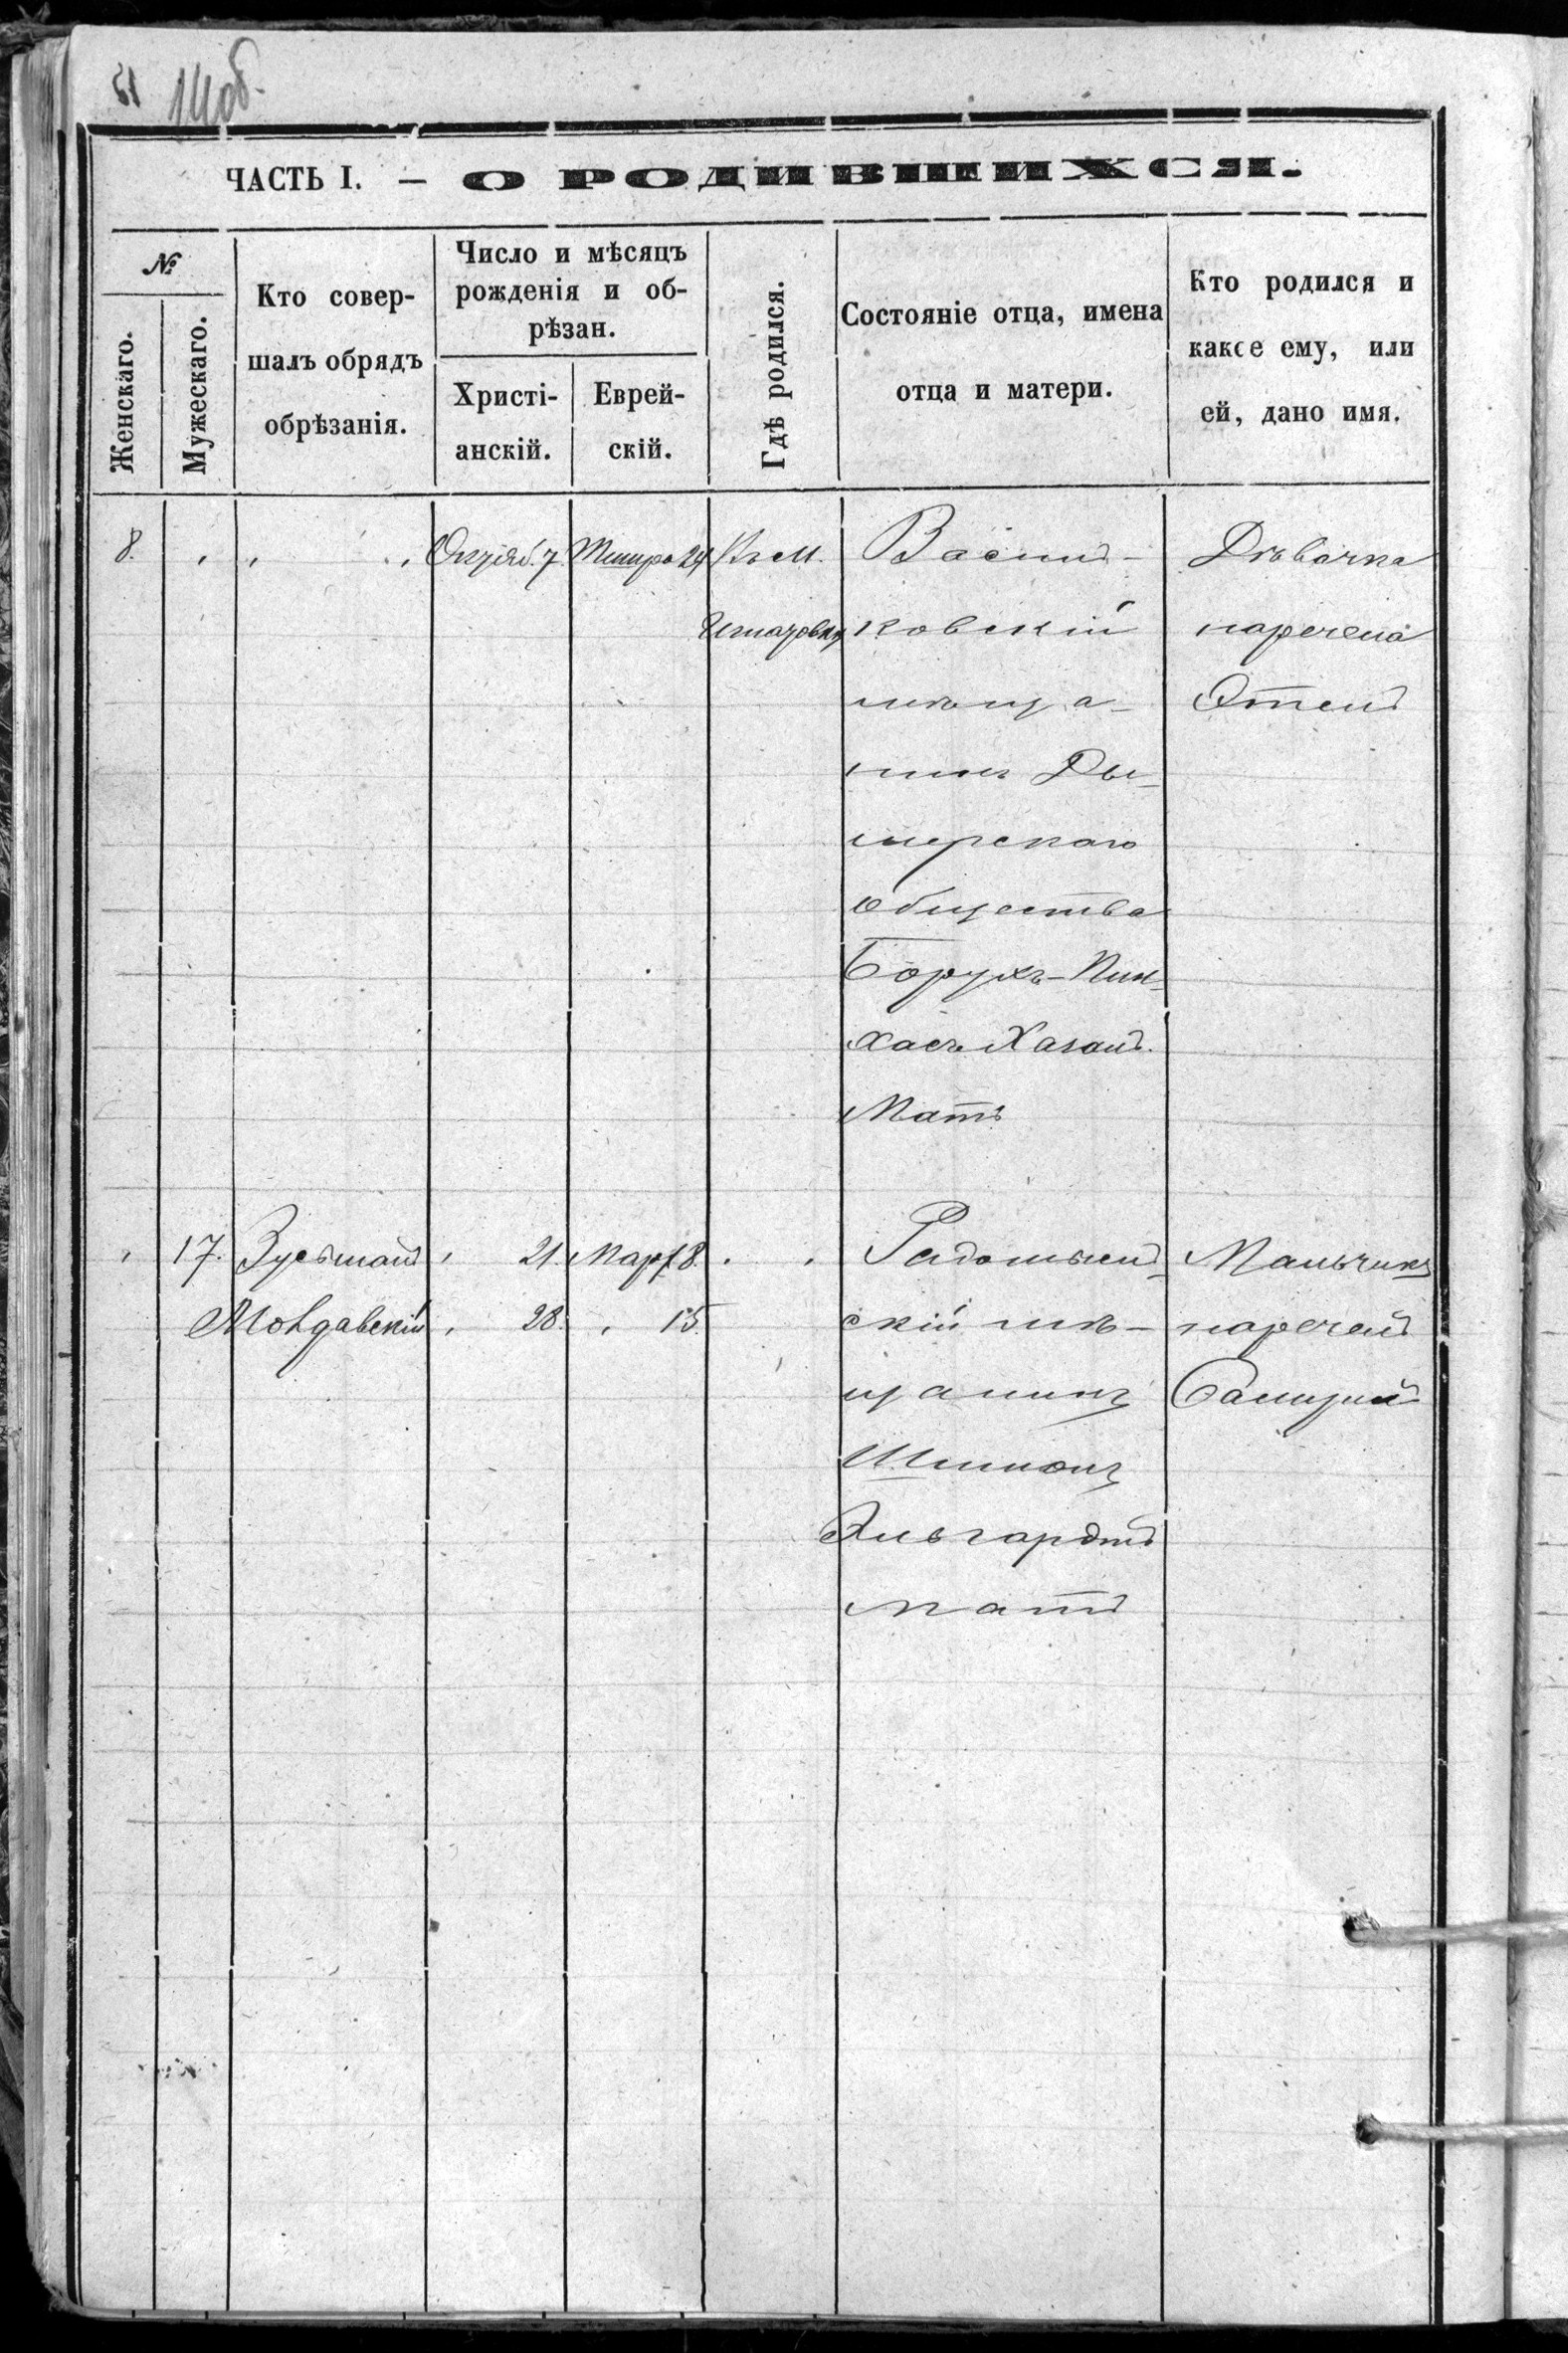 51 14 об.
ЧАСТЬ I. — О РОДИВШИХСЯ.
№
Женскаго.
Мужескаго.
Кто совер-
шалъ обрядъ
обрѣзанія.
Число и мѣсяцъ
рожденія и об-
рѣзан.
Христі-
анскій.
Еврей-
скій.
Гдѣ родился.
Состояніе отца, имена
отца и матери.
Кто родился и
какое ему, или
ей, дано имя.
8. Октяб. 7. Тишро 24 Въ м.
Игнатовкѣ
Василь-
ковскій
мѣща-
нинъ Ды-
мерскаго
общества
Борухъ-Пин-
хасъ Хазанъ.
Мать
Дѣвочка
наречена
Этель
17. Зусьманъ 21. Мар. 8.
Молдавскій 28. 15.
Радомысль-
скій мѣ-
щанинъ
Шимонъ
Эльгардтъ
мать
Мальчикъ
нареченъ